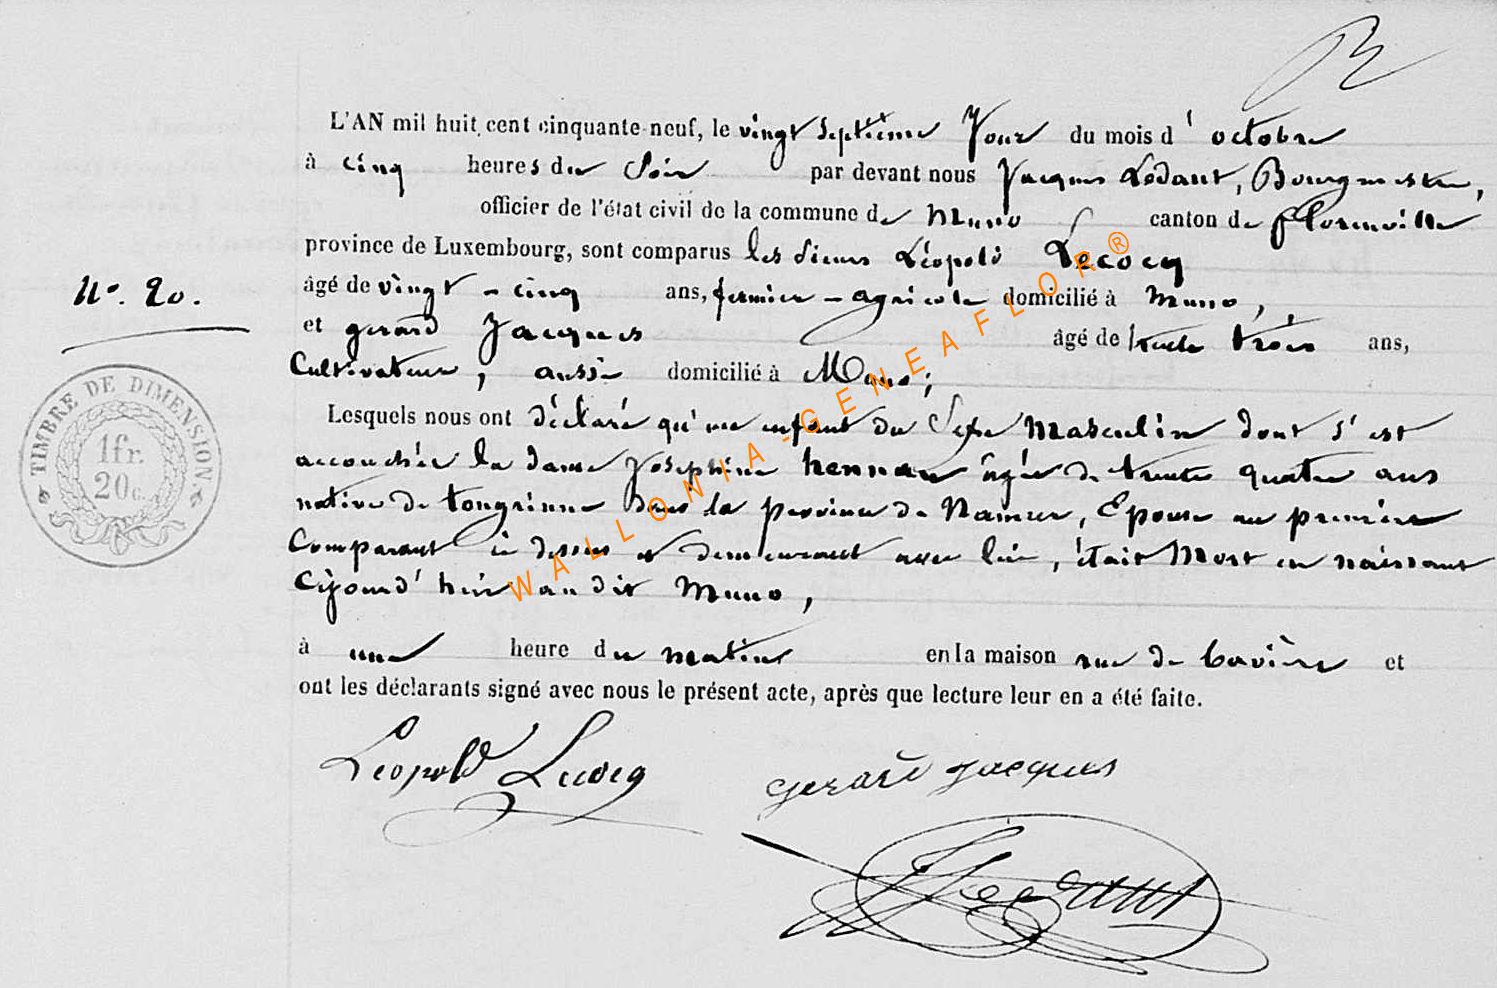 L'AN mil huit cent cinquante-neuf, le vingt septième Jour du mois d' octobre
à cinq heures du Soir par devant nous Jacques Lodant, Bourgmestre,
officier de l'état civil de la commune de Muno canton de florenville
province de Luxembourg, sont comparus les Sieurs Léopold Lecocq
âgé de vingt-cinq ans, fermier-agricole domicilié à Muno,
N°. 20.
et gerard Jacques âgé de trente trois ans,
Cultivateur, aussi domicilié à Muno;
Lesquels nous ont déclaré qu'un enfant du Sexe Masculin dont s'est
accouchée la dame Joséphine hennau âgée de trente quatre ans
native de tongrinne dans la province de Namur, Epouse au premier
Comparant ci dessus et demeurant avec lui, était Mort en naissant
Cejourd'hui au dit Muno,
à une heure du matin en la maison rue de bavière et
ont les déclarants signé avec nous le présent acte, après que lecture leur en a été faite.
TIMBRE DE DIMENSION
1fr.
20c.
Léopold Lecocq gerard jacques
WALLONIA-GENEAFLOR®